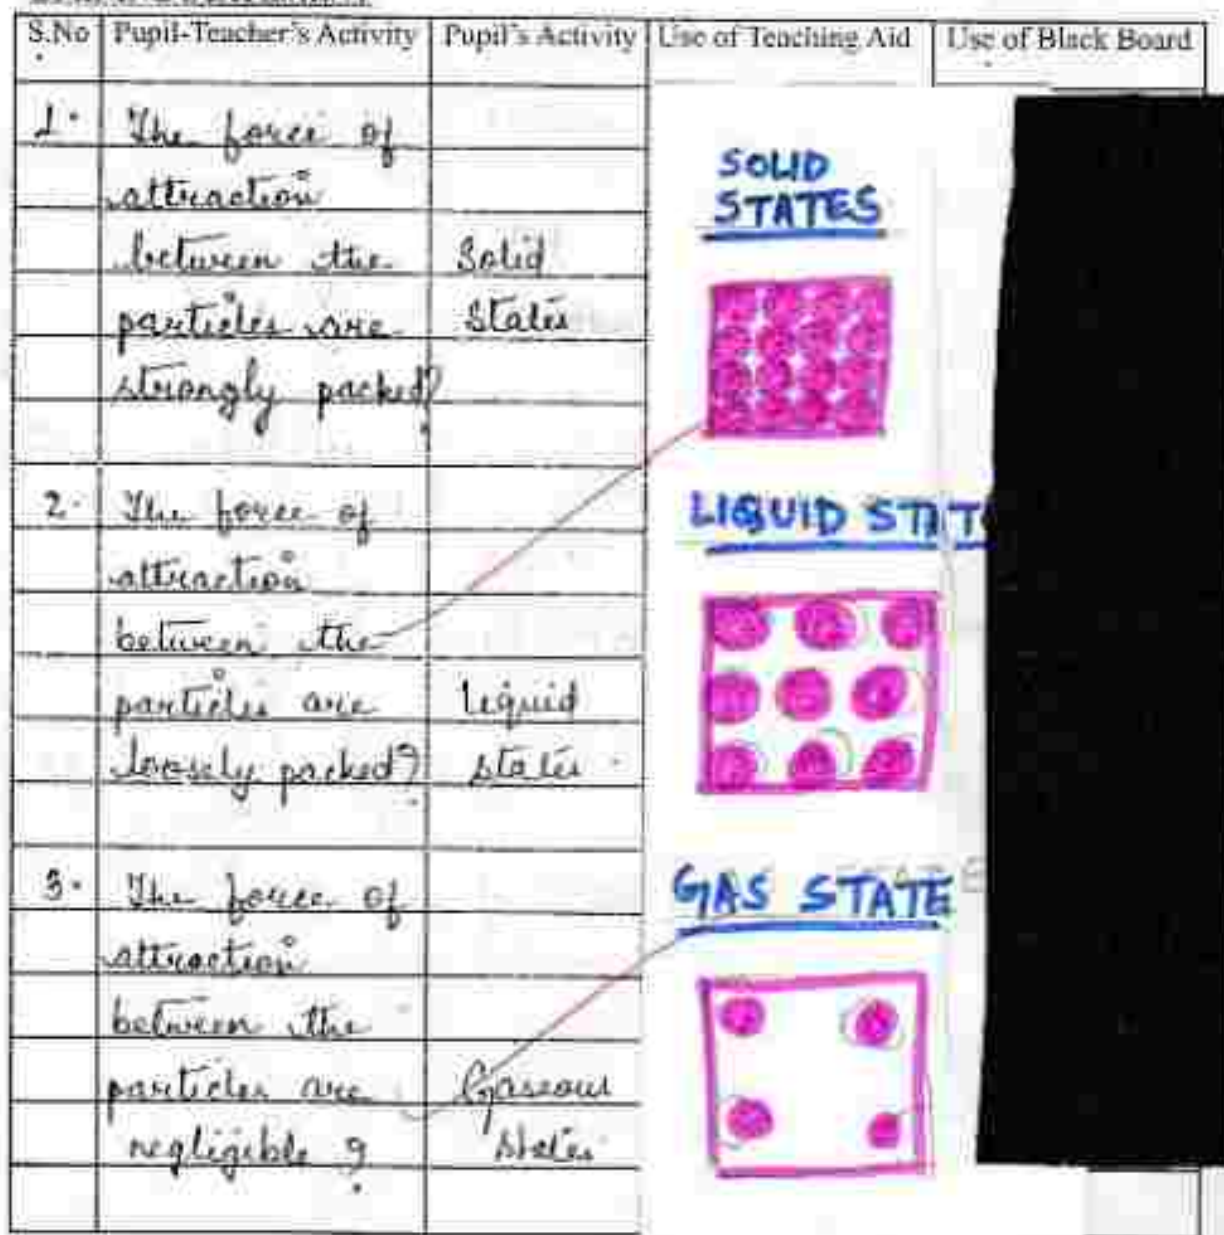 S.No Pupil-Teacher's Activity Pupil's Activity Use of Teaching Aid Use of Black Board
1. The force of
attraction
between the
particles are
strongly packed?
Solid
States
SOLID
STATES
2. The force of
attraction
between the
particles are
loosely packed?
Liquid
states
LIQUID STAT
3. The force of
attraction
between the
particles are
negligible?
Gaseous
states
GAS STATE